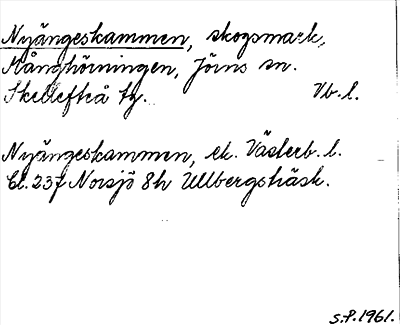 Nyängeskammen, skogsmark,
Månghörningen, Jörns sn.
Skellefteå tg. Vb. l.
Nyängeskammen, ek. Västerb. l.
Bl. 23J Norsjö 8h Ullbergsträsk.
S.P. 1961.